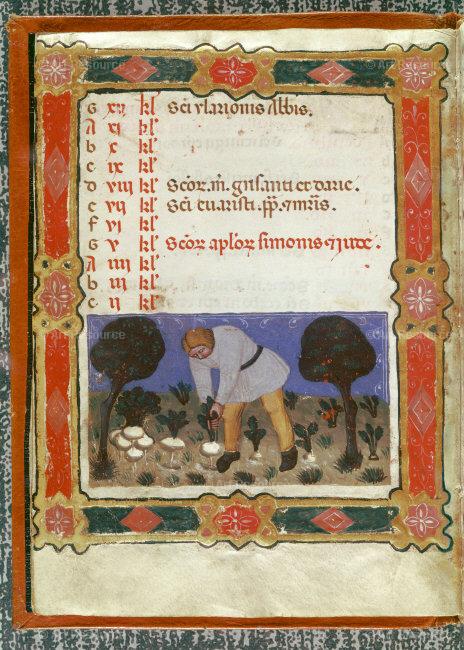 G xij kl' Sci ylarionis Abbis.
A xi kl'
b x kl'
c ix kl'
d viii kl' Scor. m. grisanti et daric.
e vij kl' Sci euaristi. pp. ⁊ mris.
f vi kl'
G v kl' Scor aplor simonis ⁊ iude.
A iiij kl'
b iij kl'
c ij kl'
Art Resource